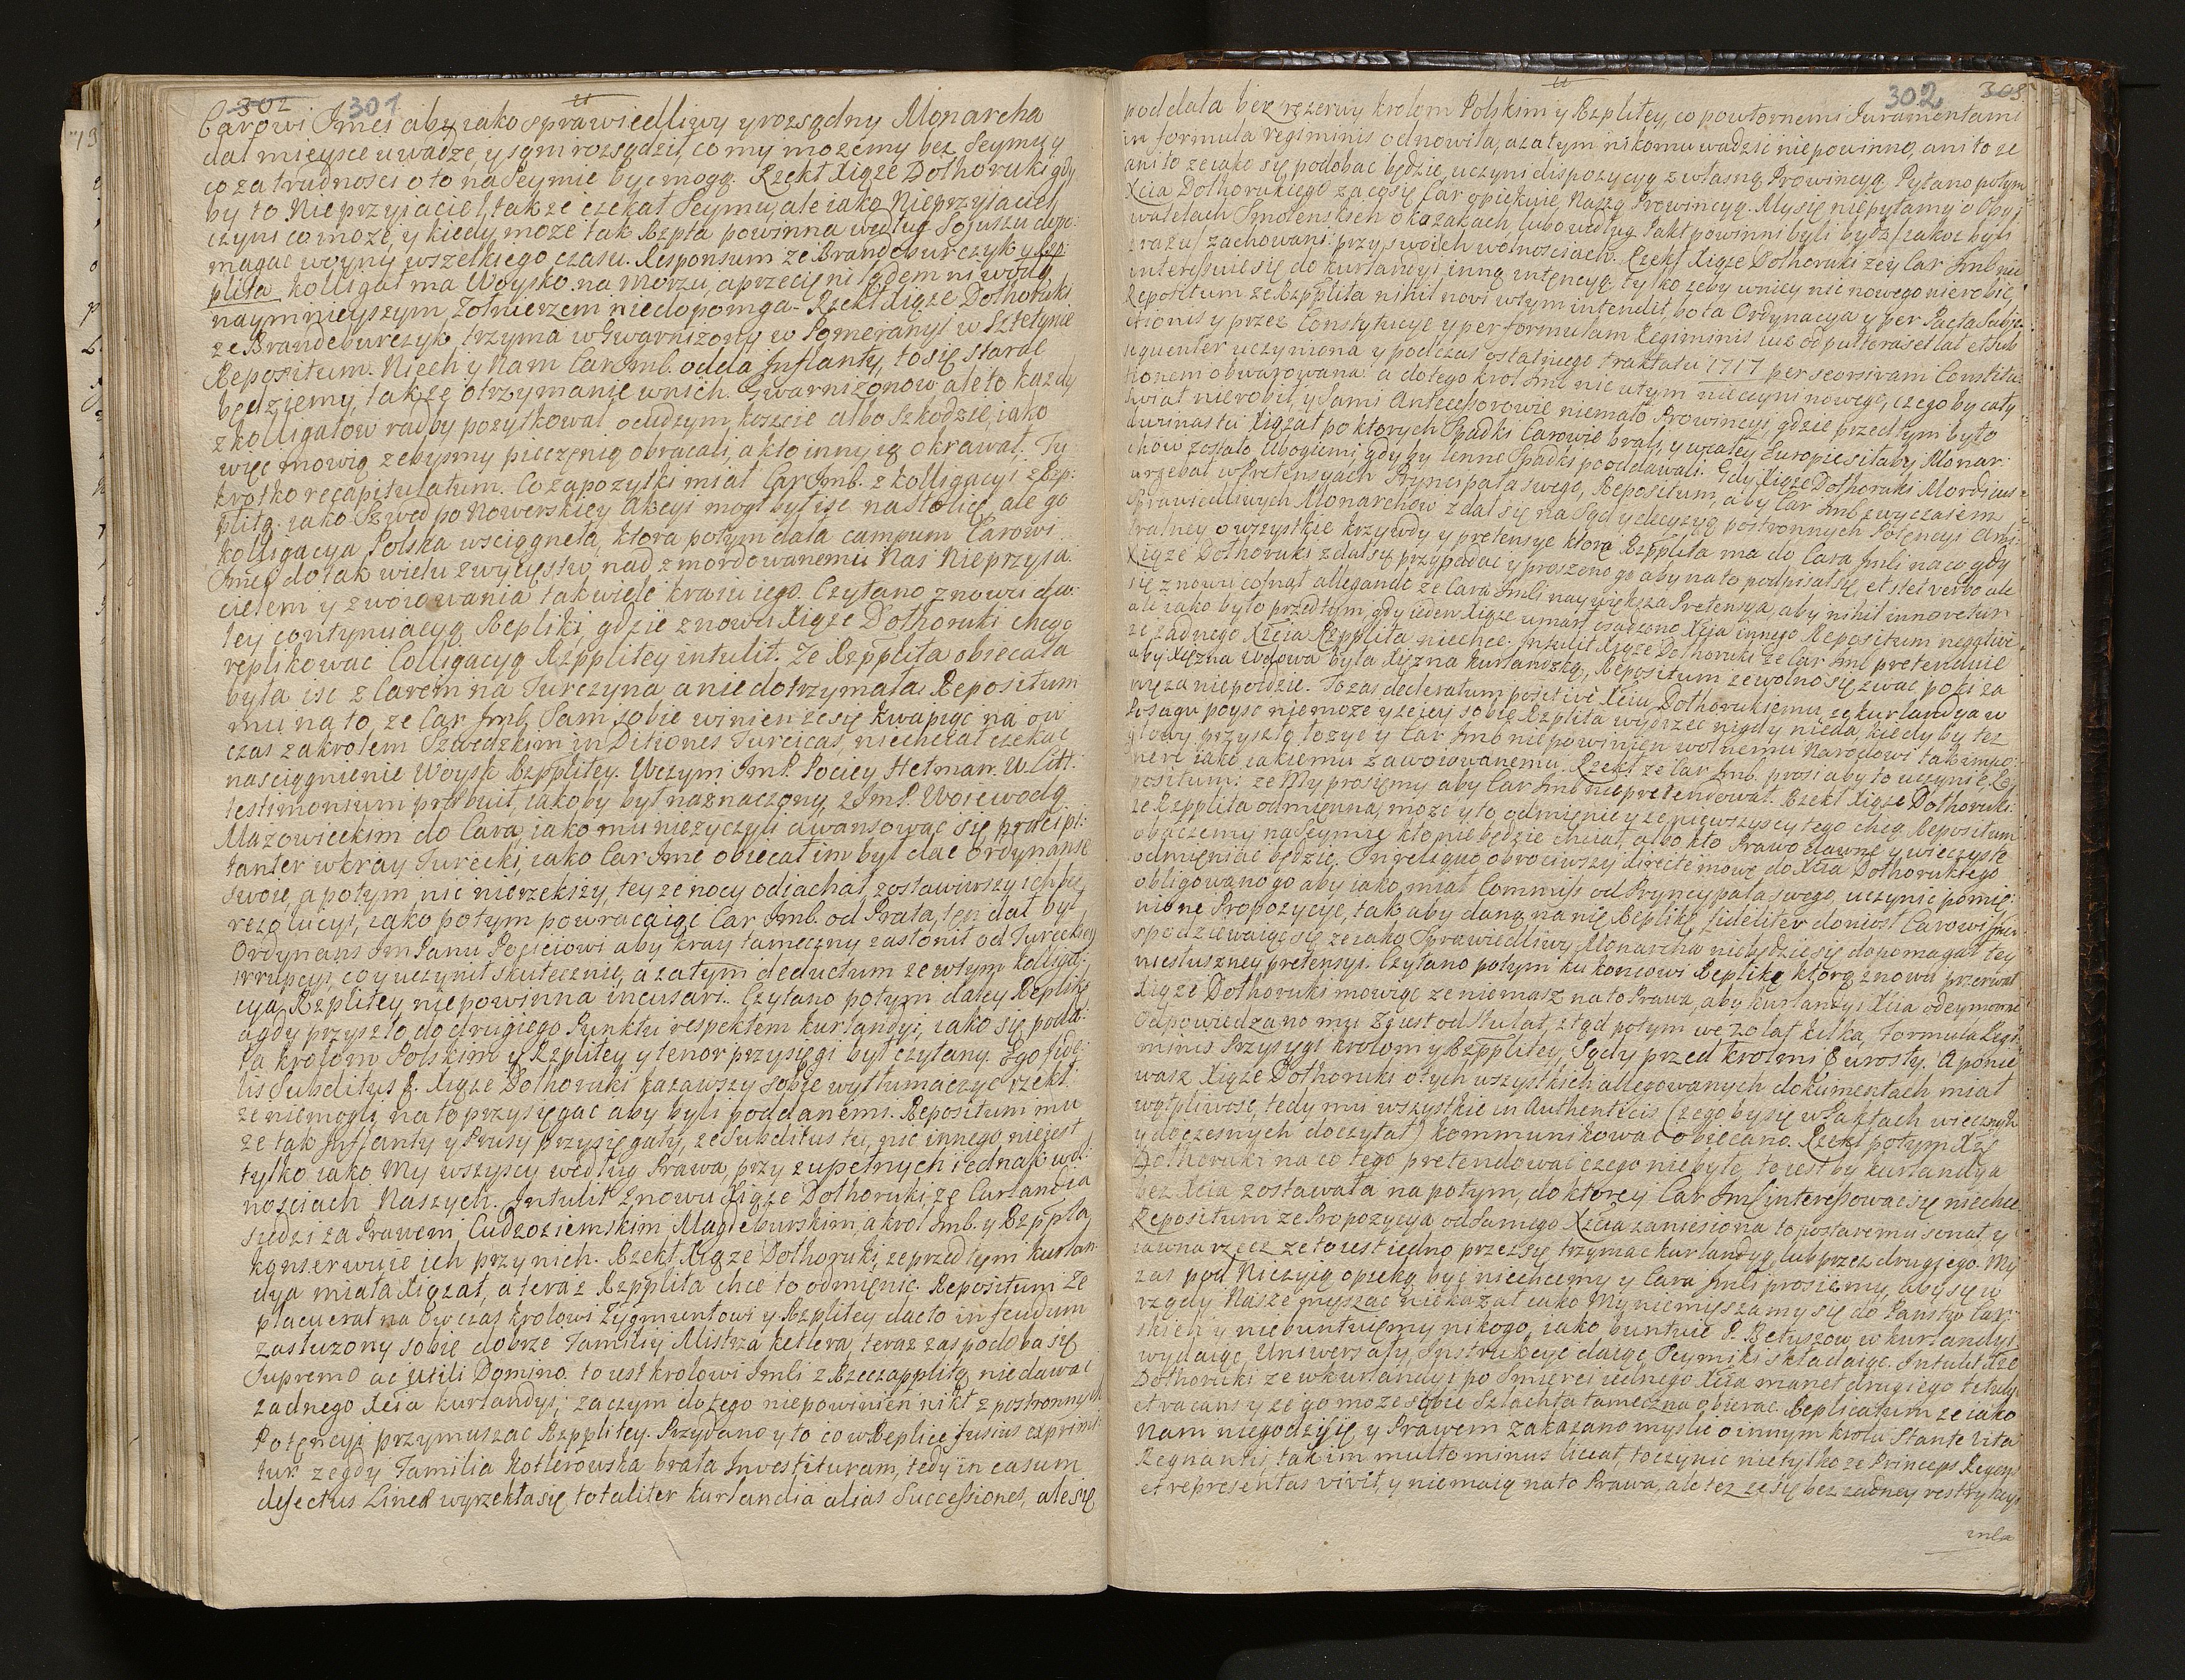 302 301
Carowi Jmci aby iako sprawiedliwy y rozsądny Monarcha
dał mieysce uwadze, y sąm rozsądził, co my możemy bez Seymu, y
co za trudnosci o to na Seymie byc mogą. Rzekł Xiąże Dołhoruki gdy
by to Nieprzyiaciel, także czekał Seymu, ale iako Nieprzyiaciel
czyni co może, y kiedy może tak Rzpta powinna według Sojuszu dopo:
magac woyny wszelkiego czasu. Responsum że Brandeburczyk y Rzp:
plita kolligat ma Woysko na Morzu, a przecię ni lądem ni wodą
naymnieyszym Zołnierzem niedopomga. Rzekł Xiąże Dołhoruki
że Brandeburczyk trzyma w Gwarnizony w Pomeranyi w Sztetynie
Repositum. Niech y Nam Car Jmć. odda Inflanty, to się starac
będziemy, także otrzymanie w nich Gwarnizonow ale to każdy
z kolligatow rad by pożytkował o cudzym koszcie albo szkodzie, iako
więc mowią żebysmy pieczenią obracali, a kto inny ią okrawał. Tu
krotko recapitulatum. Co za pożytki miał Car Jmć. z kolligacyi z Rzp:
plitą. iako Szwed po Nowerskiey Akcyi mogł był isc na Stolicę, ale go
kolligacya Polska wsciągneła, ktora potym dała campum Carowi
Jmci do tak wielu zwycięstw nad zmordowanemu Nas Nieprzyia:
cielem y zwoiowania tak wiele kraiu iego. Czytano znowu da:
ley continuacyą Repliki, gdzie znowu Xiąże Dołhoruki chcąc
replikowac Colligacyą Rzpplitey intulit. Ze Rzpplita obiecała
była isc z Carem na Turczyna a nie dotrzymała. Repositum
mu na to, że Car Jmć. Sam sobie winien że się kwapiąc na ow
czas za krolem Szwedzkim in Ditiones Turcicas, niechciał czekac
na sciągnienie Woysk Rzpplitey. W czym JmP. Pociey Hetman. W. Litt.
testimonium prębuit, iakoby był naznaczony z JmP. Woiewodą
Mazowieckim do Cara, iako mu nieżyczyli awansowac się precipi:
tanter w kray Turecki, iako Car Jmc obiecał im był dac Ordynanse
swoie, a potym nic nierzekszy, tey że nocy odiachał, zostawiwszy ich bez
rezolucyi, iako potym powracaiąc Car Jmć. od Prata, ten dał był
Ordynans Jm Panu Pocieiowi aby kray tameczny zasłonił od Tureckiey
irrupcyi, co y uczynił skutecznie, a zatym deductum że w tym kolliga:
cya Rzplitey niepowinna incusari. Czytano potym daley Replikę
a gdy przyszło do drugiego Punktu respektem Kurlandyi, iako się podda:
ła krolom Polskim y Rzplitey y tenor przysięgi był czytany. Ego fide:
lis Subditus &. Xiąże Dołhoruki kazawszy sobie wytłumaczyc rzekł
że niemogli na to przysięgac aby byli poddanemi. Repositum mu
że tak Inflanty y Prusy przysięgały, że Subditus tu, nic innego nieiest
tylko iako My wszyscy według Prawa, przy zupełnych iednak wol:
nosciach Naszych. Intulit znowu Xiąże Dołhoruki, że Curlandia
sądzi za Prawem Cudzoziemskim Magdeburskim, a krol Jmć. y Rzppta
konserwuie ich przy nich. Rzekł Xiąże Dołhoruki, że przed tym kurlan:
dya miała Xiążat, a teraz Rzpplita chce to odmięnic. Repositum że
placuerat na ow czas Krolowi Zygmuntowi y Rzplitey dac to in feudum
zasłużony sobie dobrze Familiy Mistrza Ketlera, teraz zas podoba się
Supremo ac utili Domino. to iest krolowi Jmci z Rzecząpplitą niedawac
żadnego Xcia Kurlandyi; zaczym do tego niepowinien nikt z postronnych
Potęncyi przymuszac Rzpplitey. Przydano y to co w Replice fusius exprimi:
tur że gdy Familia Kotlerowska brała Investituram, tedy in casum
defectus Lineæ wyrzekła się totaliter Kurlandia alias Successiones, ale się
302 303
poddała bez rezerwy krolom Polskim y Rzplitey, co powtornemi Juramentami
in formula regiminis odnowiła, a zatym nikomu wadzic niepowinno, ani to że
ani to że iako się podobac będzie, uczyni dispozycyą z własną Prowincyą. Pytano potym
Xcia Dołhorukiego za co się Car opiekuie Naszą Prowincyą. My się niepytamy o Oby:
watelach Smolenskich o kozakach, lubo według Pakt powinni byli bydz iakoż byli
zrazu zachowani przy swoich wolnosciach. Rzekł Xiąże Dołhoruki że y Car Jmć nie
interessuie się do kurlandyi inną intęncyą tylko żeby w niey nic nowego nierobic,
Repositum że Rzpplita nihil novi w tym intendit, bo ta Ordynacya y per Pacta Subje:
ctionis y przez Constytucye y per formulam Regiminis iuż od pułtoraset lat et sub
sequenter uczyniona y podczas ostatniego traktatu 1717 per seorsivam Constitu:
tionem obwarowana. a do tego krol Jmć nic w tym nieczyni nowego, czego by cały
swiat nierobił, y Sami Antecessorowie niemało Prowincyi, gdzie przedtym było
dwunastu Xiążat po ktorych Spadki Carowie brali, y w całey Europie siłaby Monar:
chow zostało Ubogiemi, gdy by lenne Spadki pooddawali. Gdy Xiąże Dołhoruki Mordicus
urgebat w Pretensyach Pryncypała swego, Repositum, aby Car Jmć zwyczaiem
Sprawiedliwych Monarchow zdał się na Sąd y decyzyą postronnych Potęncyi Arbi:
tralney o wszystkie krzywdy y pretensye ktorą Rzpplita ma do Cara Jmci na co gdy
Xiąże Dołhoruki zdał się przypadac y proszono go aby na to podpisał się, et stet verbo ale
się znowu cofnął allegando że Cara Jmci naywiększa Pretensya, aby nihil innovetur
ale iako było przed tym, gdy ieden Xiąże umarł osadzono Xcia innego. Repositum negative
że żadnego Xzcia Rzpplita niechce. Intulit Xiąże Dołhoruki że Car Jmć pretenduie
aby Xiężna Wdowa była Xiężną Kurlandzką, Repositum że wolno się zwac poki za
mąż niepoidzie. To zas declaratum positivè Xciu Dołhorukiemu, że kurlandya w
Posagu poysc niemoże y że iey sobie Rzplita wydrzec nigdy nieda, kiedy by też
głowy przyszło łożyc y Car Jmć niepowinien wolnemu Narodowi tak impo:
nere iako iakiemu zawoiowanemu. Rzekł że Car Jmć. prosi aby to uczynic, Re:
positum: że My prosięmy aby Car Jmć niepretendował. Rzekł Xiąże Dołhoruki.
że Rzpplita odmięnna, może y to, odmięnic y że niewszyscy tego chcą. Repositum
obaczemy na Seymię kto nie będzie chciał, albo kto Prawo dawne y wieczyste
odmieniac będzie. In reliquo obrociwszy directè mowę do Xcia Dołhorukiego
obligowano go aby iako miał Commiss od Pryncypała swego, uczynic pomię:
nione Propozycye, tak aby daną na nię Replikę fideliter doniosł Carowi Jmci
spodziewaiąc się że iako Sprawiedliwy Monarcha niebędzie się dopomagał tey
niesłuszney pretensyi. Czytano potym ku koncowi Replikę ktorą znowu przerwał
Xiąże Dołhoruki mowiąc że niemasz na to Prawa, aby kurlandyi Xcia odeymowac
Odpowiedzano mu że iest od stu lat, ztąd potym we 20 lat kilka, Formula Regi:
minis Przysięgi krolom y Rzpplitey, Sądy przed krolmi & urosły. A ponie:
waż Xiąże Dołhoruki o tych wszystkich allegowanych dokumentach miał
wątpliwosc, tedy mu wszystkie in Authenticis (czego by się w Paktach wiecznych
y doczesnych doczytał) kommunikowac obiecano. Rzekł potym Xżę
Dołhoruki na co tego pretendowac czego niebyło, to iest by kurlandya
bez Xcia zostawała na potym, do ktorey Car Jmć interessowac się niechce
Repositum że Propozycya od Samego Xzcia zaniesiona to postaremu sonat, y
iawna rzecz że to iest iedno przez się trzymac kurlandyą, lub przez drugiego. My
zas pod Niczyią opieką byc niechcemy y Cara Jmci prosięmy, aby się w
rządy Nasze mięszac niekazał iako My niemięszamy się do Państw Car:
skich y niebuntuięmy nikogo, iako buntuie P. Betuszow w kurlandyi
wydaiąc Uniwersały, Instrukcye daiąc, Seymiki składaiąc. Intulit Xże
Dołhoruki że w kurlandyi po Smierci iednego Xcia manet drugiego tituly
et vacans y że go może sobie Szlachta tameczna obierac. Replicatum że iako
Nam niegodzi się y Prawem zakazano myslic o innym krolu Stante Vita
Regnantis, tak im multo minus liceat, to czynic nietylko że Princeps Regens
et repręsentas vivit, y niemaią na to Prawa, ale też że się bez żadney restrykcyi